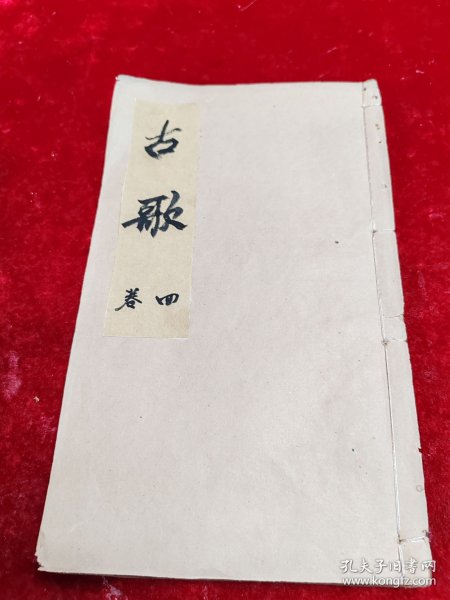 古歌
四卷
孔夫子旧书网
www.kongfz.com